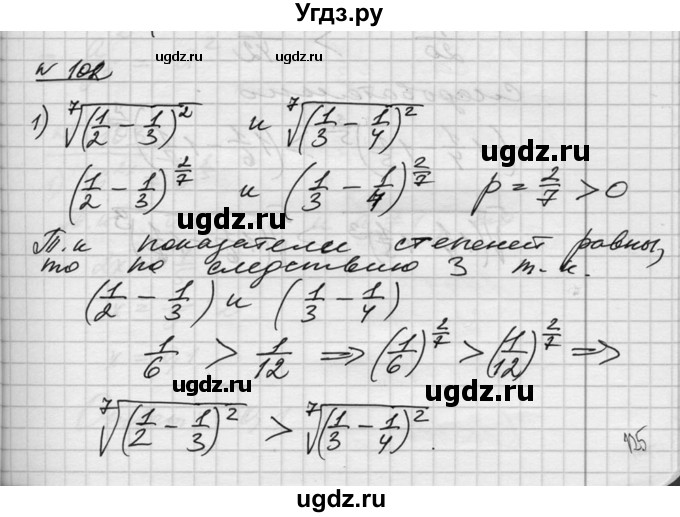 Угдз.ру
ugdz.ru ugdz.ru
№ 102
1) ⁷√(1/2 − 1/3)² и ⁷√(1/3 − 1/4)²
(1/2 − 1/3)^2/7 и (1/3 − 1/4)^2/7 p = 2/7 > 0
ugdz.ru ugdz.ru
ugdz.ru
Т.к показатели степеней равны,
то по следствию 3 т.к.
(1/2 − 1/3) и (1/3 − 1/4)
1/6 > 1/12 => (1/6)^2/7 > (1/12)^2/7 =>
ugdz.ru ugdz.ru
⁷√(1/2 − 1/3)² > ⁷√(1/3 − 1/4)².
ugdz.ru
ugdz.ru